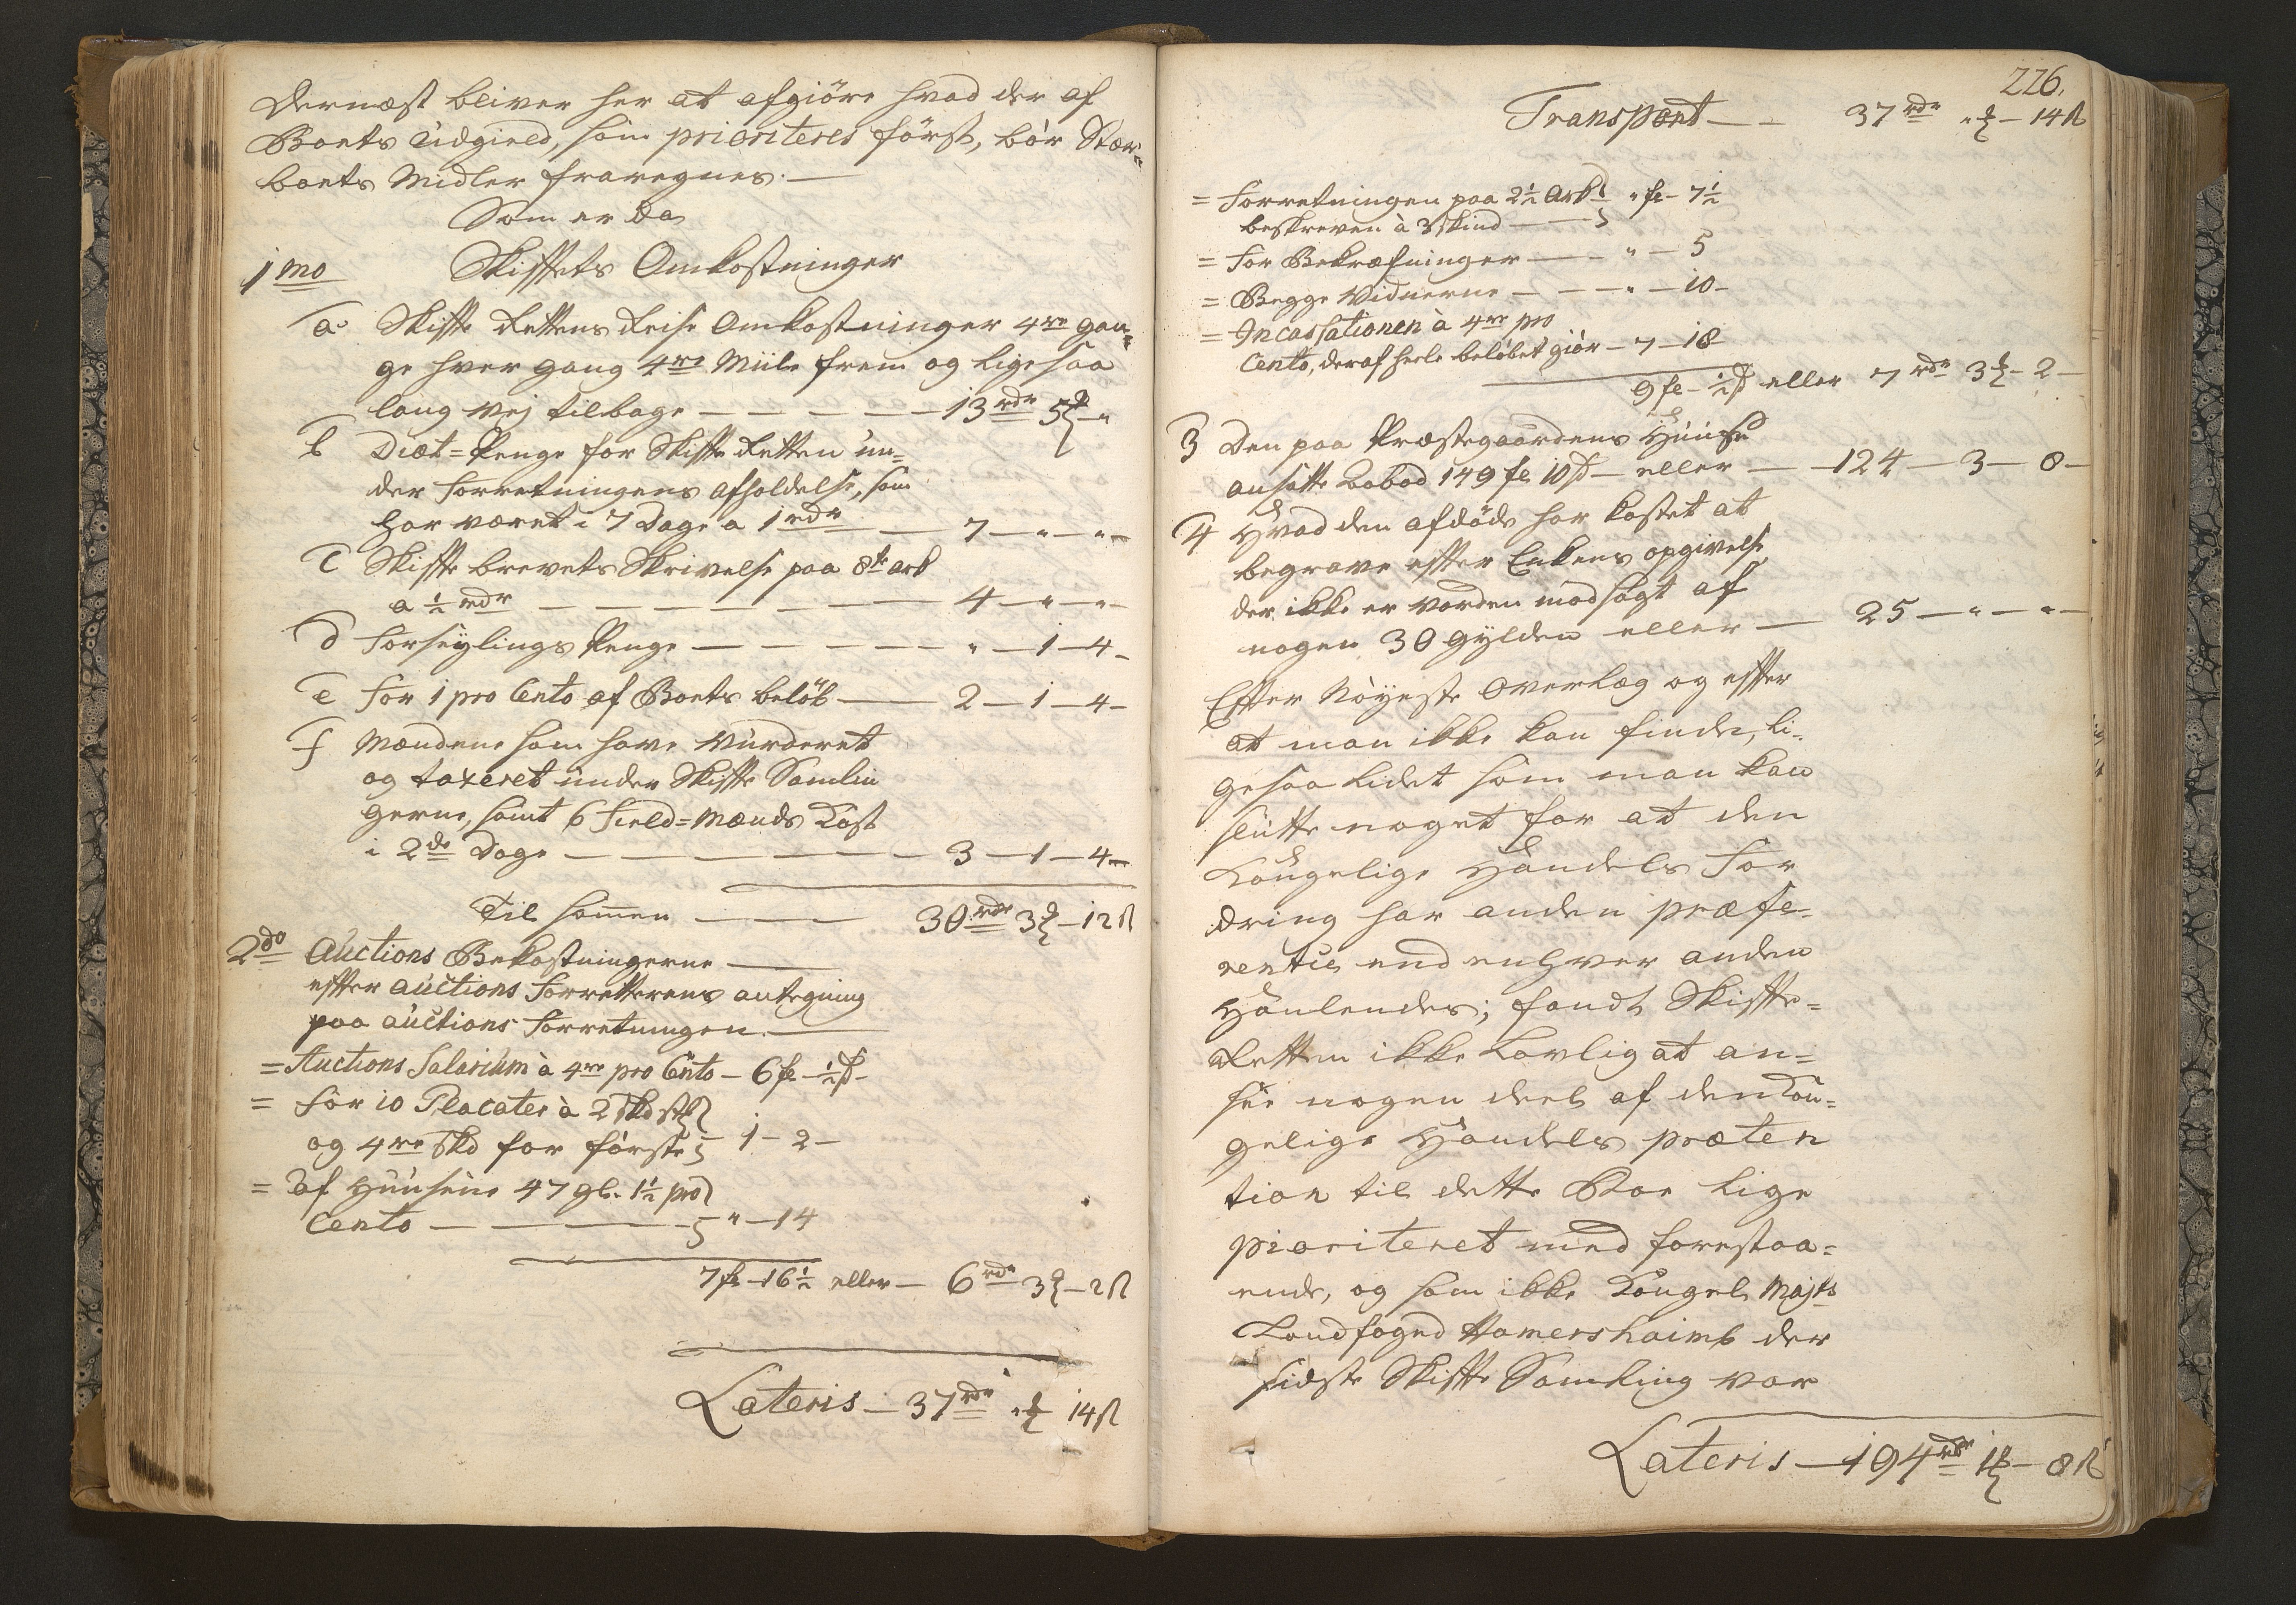 Dernæst bliver her at afgiöre hvad der af
Boets Udgield, som prioriteres först, bör Stær-
boets Midler fraregnes.
Som er da
1mo Skiftets Omkostninger
a Skifte Rettens Reise Omkostninger 4re gan-
ge hver gang 4re Miile frem og lige saa
lang Vej tilbage — 13 rdr 5 ₰ "
b Diæt-Penge for Skifte Retten un-
der Forretningens afholdelse, som
har været i 7 Dage a 1 rdr — 7 — " — "
c Skifte brevets Skrivelse paa 8te ark
a ½ rdr — 4 — " — "
d Forseylings Penge — " — 1 — 4
e For 1 pro Cento af Boets belöb — 2 — 1 — 4
f Mændene som have vurderet
og taxeret under Skifte Samlin
gerne, samt 6 Field-Mænds Kost
i 2de Dage — 3 — 1 — 4
Til sammen — 30 rdr 3 ₰ — 12 ß
2do Auctions Bekostningerne —
efter auctions Forretterens antegning
paa auctions Forretningen. —
= Auctions Salarium à 4re pro Cento — 6 fl — ½ ß
= För 10 Placater à 2 Skd stk
og 4re Skd for förste 1 — 2 —
= af Huusene 47 gl. 1½ pro
Cento — " — 14
7 fl — 16½ eller — 6 rdr 3 ₰ — 2 ß
Lateris — 37 rdr " ₰ 14 ß
226.
Transport — 37 rdr " ₰ — 14 ß
= Forretningen paa 2½ Ark
beskreven à 3 skind — " fl — 7½
= For Bekræftninger — " — 5
= Begge Vidnerne — " — 10 —
= Incassationen à 4re pro
Cento, deraf heele belöbet giör — 7 — 18
9 fl — ½ ß eller 7 rdr 3 ₰ — 2 —
3 Den paa Præstegaardens Huuse
ansatte Bobod 149 fl 10 ß — eller — 124 — 3 — 8 —
4 Hvad den afdöde har kostet at
begrave efter Enkens opgivelse
der ikke er vorden modsagt af
nogen 30 Gylden eller — 25 — " — " —
Efter Nöyeste Overlæg og efter
at man ikke kan finde, li-
gesaa lidet som man kan
slutte noget for at den
Kongelige Handels For
dring har anden præfe-
rentie end enhver anden
Handlendes; fandt Skifte-
Retten ikke Lovlig at an-
see nogen deel af den Kon-
gelige Handels præten
tion til dette Boe lige
prioriteret med forestaa-
ende, og som ikke Kongel Majts
Landfoged Hamershaimb der
sidste Skifte Samling var
Lateris — 194 rdr 1 ₰ — 8 ß